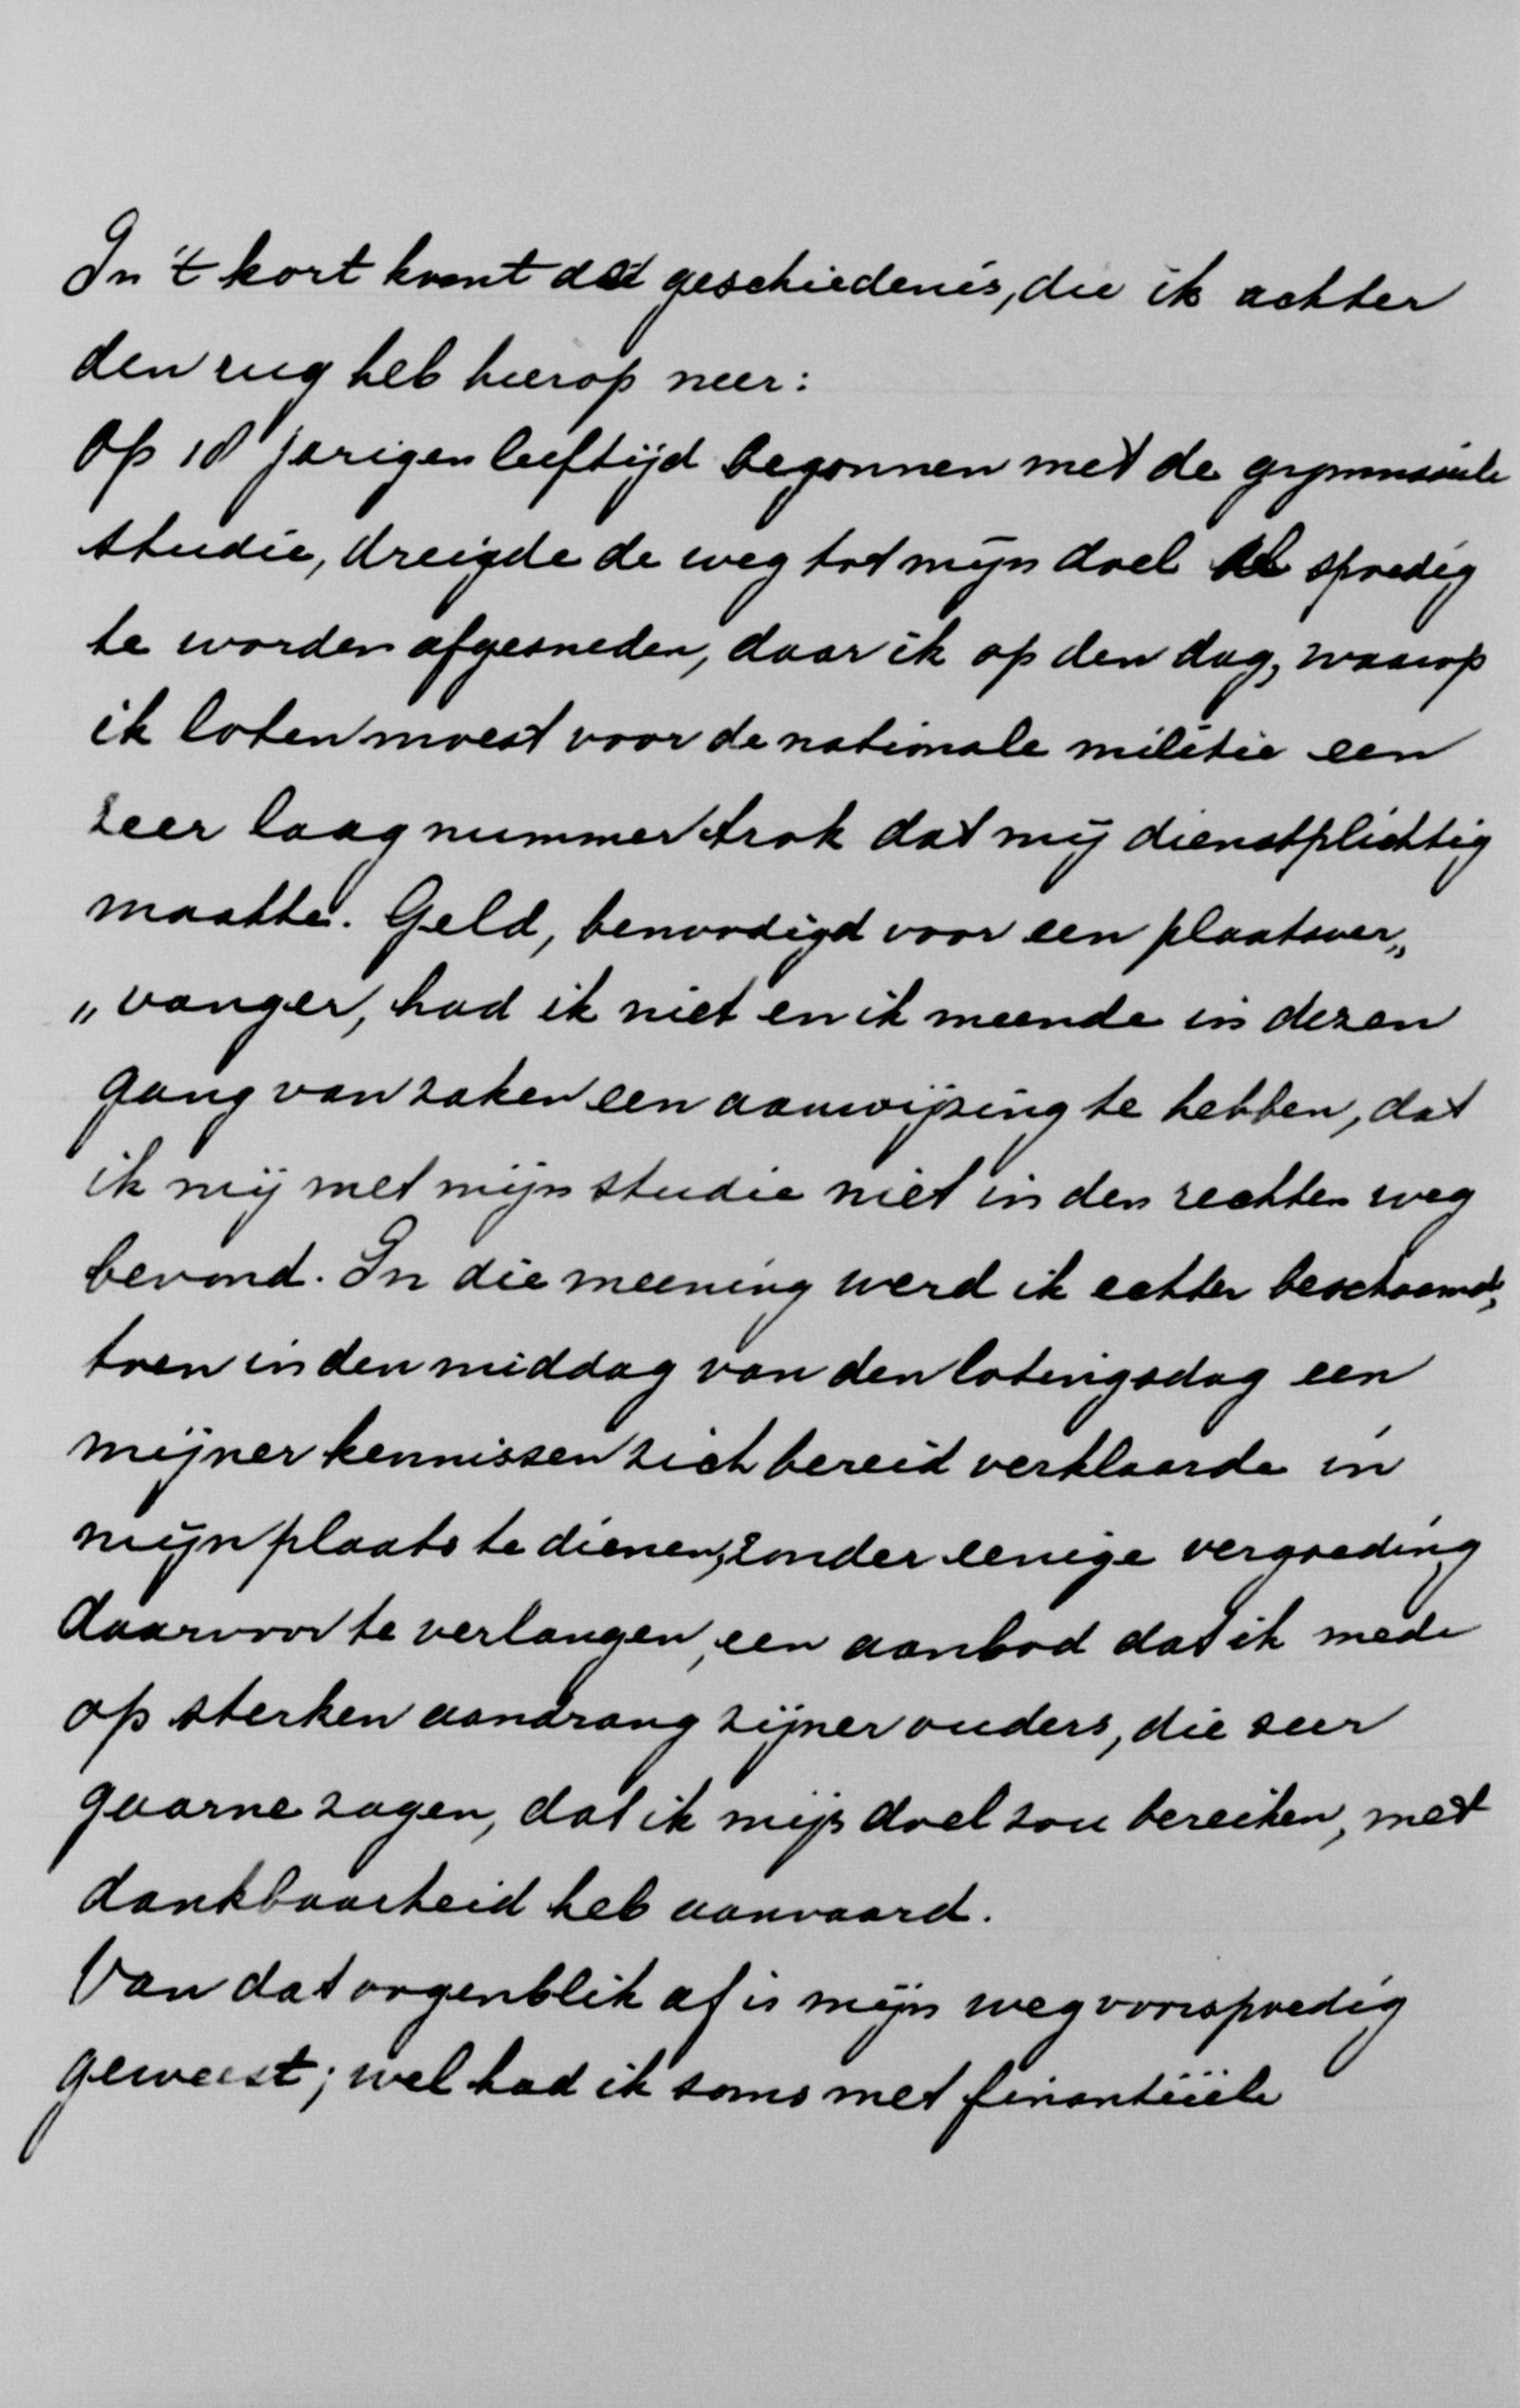 In 't kort komt dat geschiedenis, die ik achter
den rug heb hierop neer:
Op 18 jarigen leeftijd begonnen met de gymnasiale
studie, dreigde de weg tot mijn doel al spoedig
te worden afgesneden, daar ik op den dag, waarop
ik loten moest voor de nationale militie een
zeer laag nummer trok dat mij dienstplichtig
maakte. Geld, benoodigd voor een plaatsver„
„vanger, had ik niet en ik meende in dezen
gang van zaken een aanwijzing te hebben, dat
ik mij met mijn studie niet in den rechten weg
bevond. In die meening werd ik echter beschaamd,
toen in den middag van den lotingsdag een
mijner kennissen zich bereid verklaarde in
mijn plaats te dienen, zonder eenige vergoeding
daarvoor te verlangen, een aanbod dat ik mede
op sterken aandrang zijner ouders, die zeer
gaarne zagen, dat ik mijn doel zou bereiken, met
dankbaarheid heb aanvaard.
Van dat oogenblik af is mijn weg voorspoedig
geweest; wel had ik soms met finantiëele